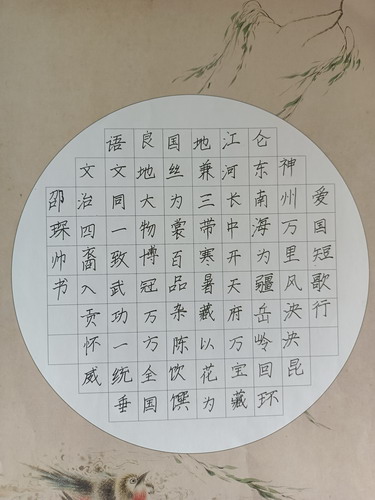 爱国短歌行
神州万里风泱泱昆
仑东南海为疆岳岭回环
江河长中开天府万宝藏
地兼三带寒暑藏以花为
国丝为裳百品杂陈饮馔
良地大物博冠万方全国
语文同一致武功一统垂
文治四裔入贡怀威
邵琛帅书